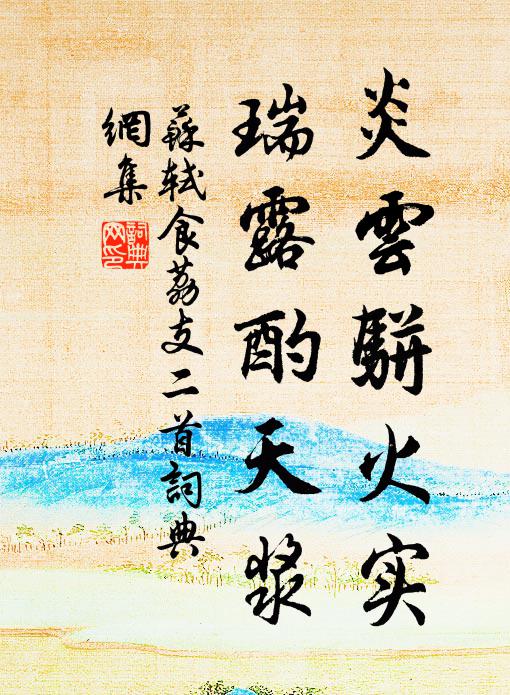 炎雲駢火实
瑞露酌天漿
蘇軾食荔支二首詞典
網集
詞典
网印